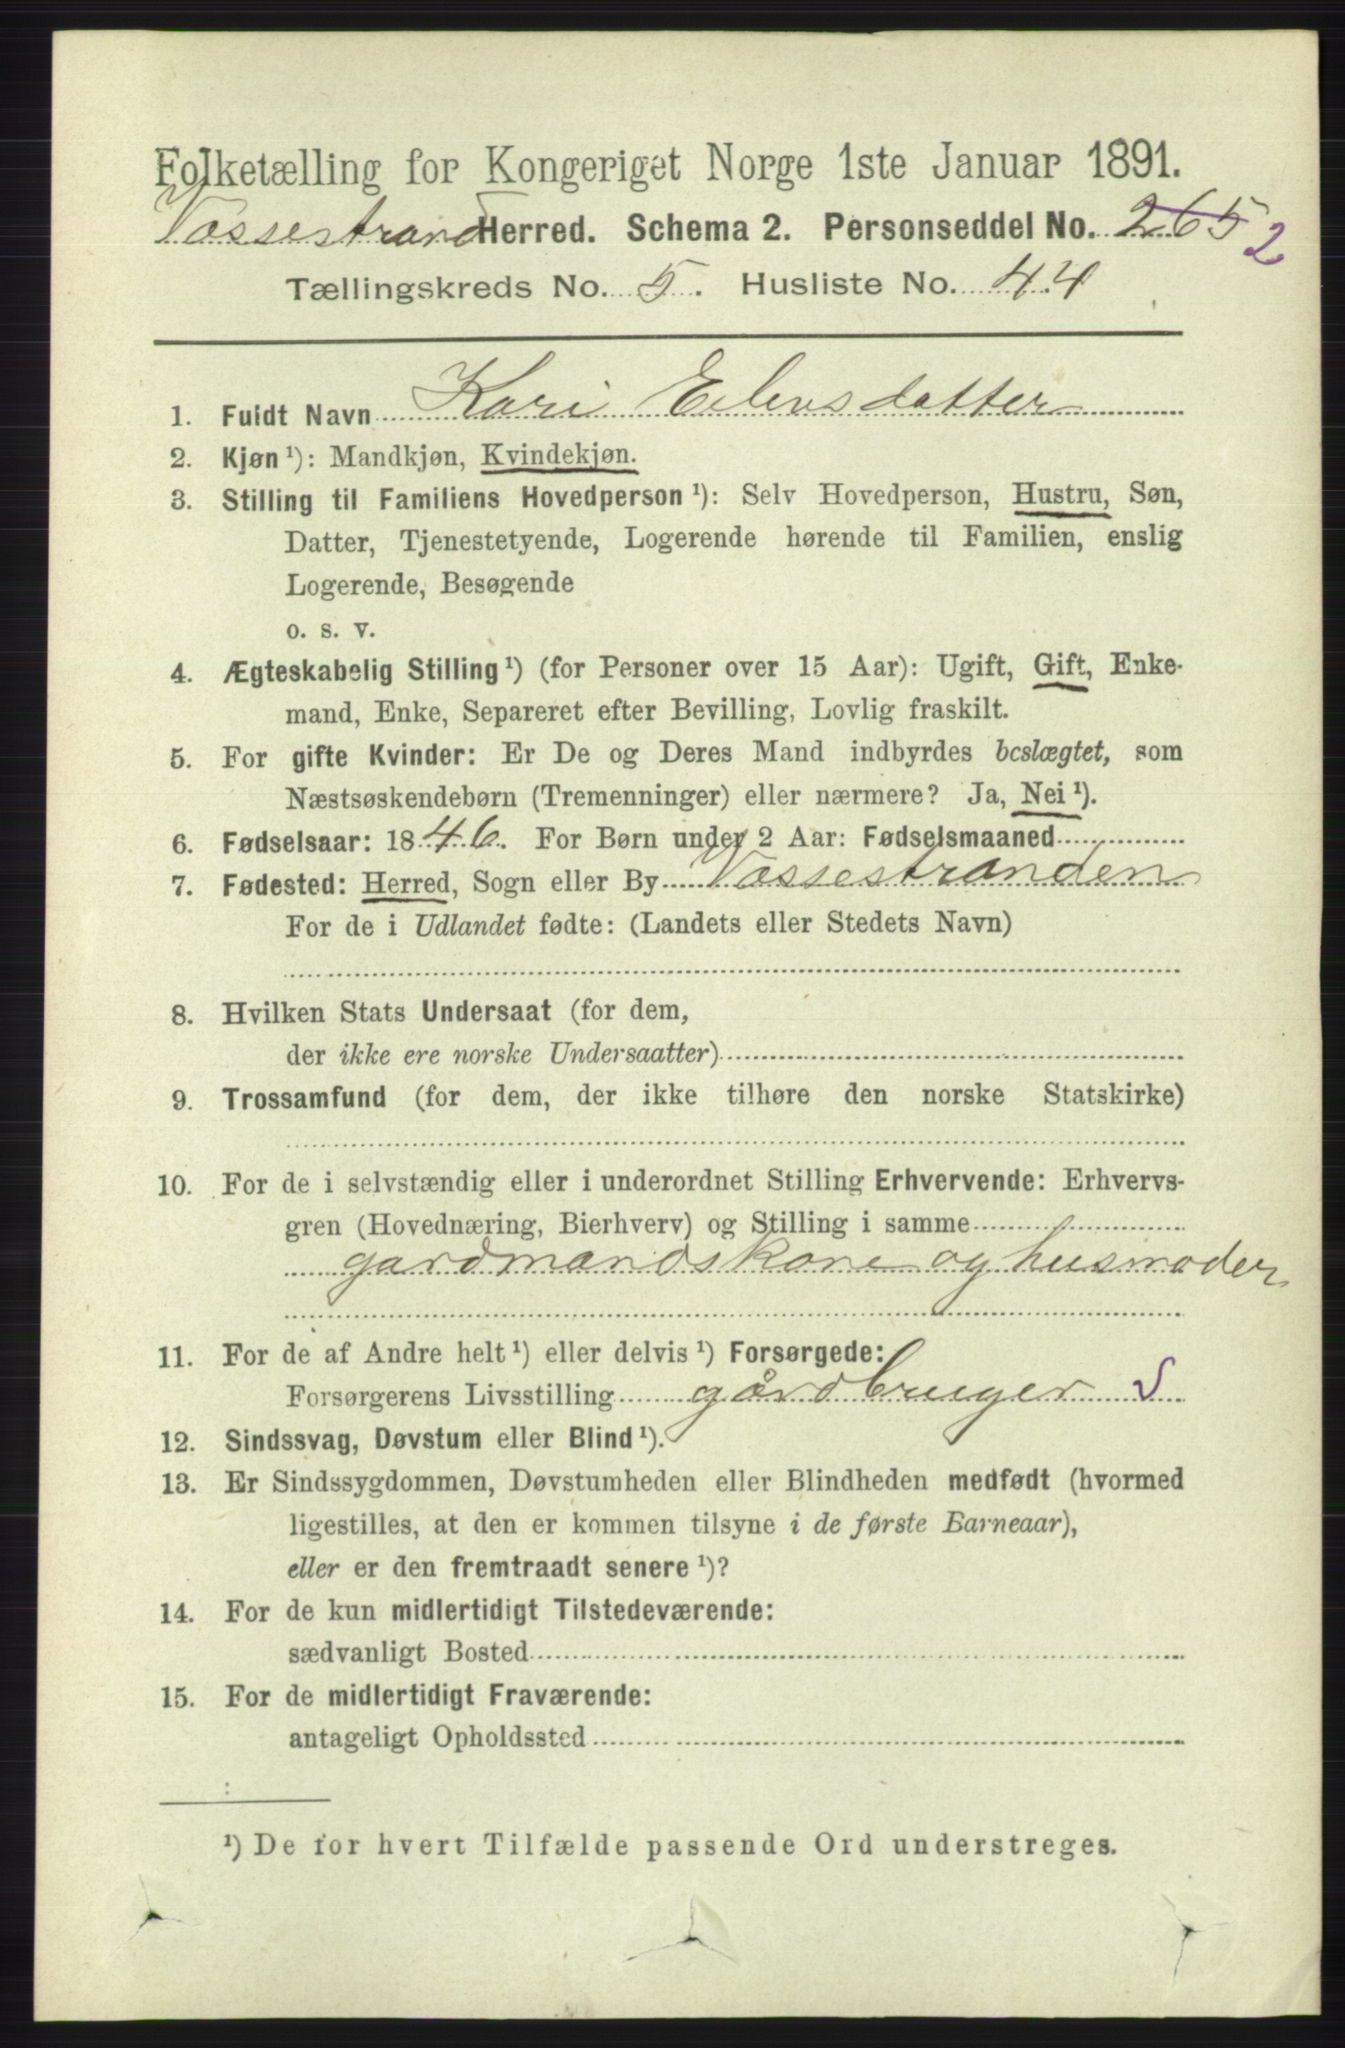 Folketælling for Kongeriget Norge 1ste Januar 1891.
Vossestrand Herred. Schema 2. Personseddel No. 265 2
Tællingskreds No. 5. Husliste No. 44
1. Fuldt Navn Kari Eilevsdatter
2. Kjøn ¹): Mandkjøn, Kvindekjøn.
3. Stilling til Familiens Hovedperson ¹): Selv Hovedperson, Hustru, Søn,
Datter, Tjenestetyende, Logerende hørende til Familien, enslig
Logerende, Besøgende
o. s. v.
4. Ægteskabelig Stilling ¹) (for Personer over 15 Aar): Ugift, Gift, Enke-
mand, Enke, Separeret efter Bevilling, Lovlig fraskilt.
5. For gifte Kvinder: Er De og Deres Mand indbyrdes beslægtet, som
Næstsøskendebørn (Tremenninger) eller nærmere? Ja, Nei ¹).
6. Fødselsaar: 1846. For Børn under 2 Aar: Fødselsmaaned
7. Fødested: Herred, Sogn eller By Vossestranden
For de i Udlandet fødte: (Landets eller Stedets Navn)
8. Hvilken Stats Undersaat (for dem,
der ikke ere norske Undersaatter)
9. Trossamfund (for dem, der ikke tilhøre den norske Statskirke)
10. For de i selvstændig eller i underordnet Stilling Erhvervende: Erhvervs-
gren (Hovednæring, Bierhverv) og Stilling i samme
gardmandskone og husmoder
11. For de af Andre helt ¹) eller delvis ¹) Forsørgede:
Forsørgerens Livsstilling gårdbruger S
12. Sindssvag, Døvstum eller Blind ¹).
13. Er Sindssygdommen, Døvstumheden eller Blindheden medfødt (hvormed
ligestilles, at den er kommen tilsyne i de første Barneaar),
eller er den fremtraadt senere ¹)?
14. For de kun midlertidigt Tilstedeværende:
sædvanligt Bosted
15. For de midlertidigt Fraværende:
antageligt Opholdssted
¹) De for hvert Tilfælde passende Ord understreges.